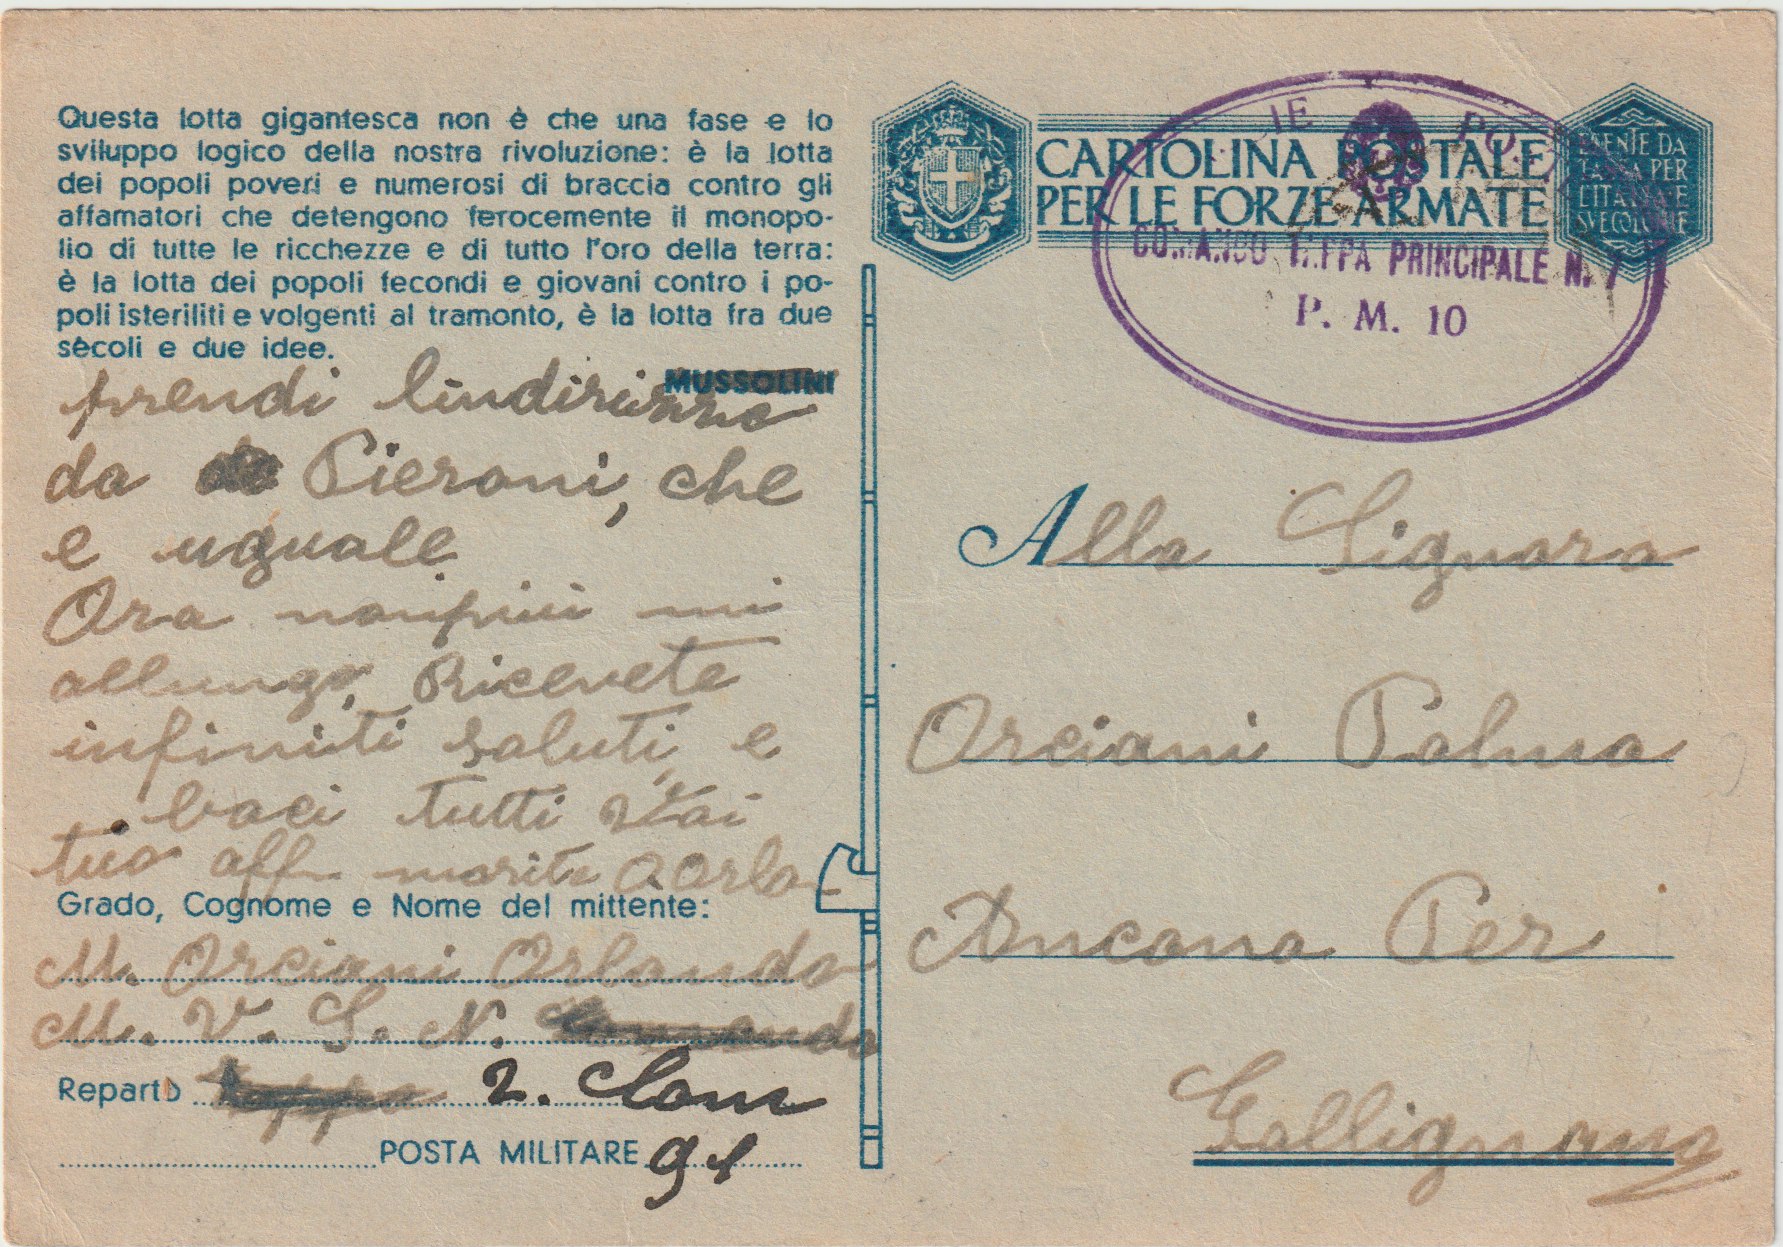 Questa lotta gigantesca non è che una fase e lo
sviluppo logico della nostra rivoluzione: è la lotta
dei popoli poveri e numerosi di braccia contro gli
affamatori che detengono ferocemente il monopo-
lio di tutte le ricchezze e di tutto l'oro della terra:
è la lotta dei popoli fecondi e giovani contro i po-
poli isteriliti e volgenti al tramonto, è la lotta fra due
sècoli e due idee.
MUSSOLINI
prendi lindirizzo
da Pieroni, che
e uguale
Ora nonpiu mi
allungo, Ricevete
infiniti saluti e
baci tutti
tuo aff marito
Grado, Cognome e Nome del mittente:
M. Orciani Orlando
M. V. S. N.
Reparto 2. Com
POSTA MILITARE 91
CARTOLINA POSTALE
PER LE FORZE ARMATE
ESENTE DA
TASSA PER
L'ITALIA E
SVE COLONIE
COMANDO TAPPA PRINCIPALE N. 7
P. M. 10
Alla Signora
Orciani Palma
Ancona Per
Gallignano